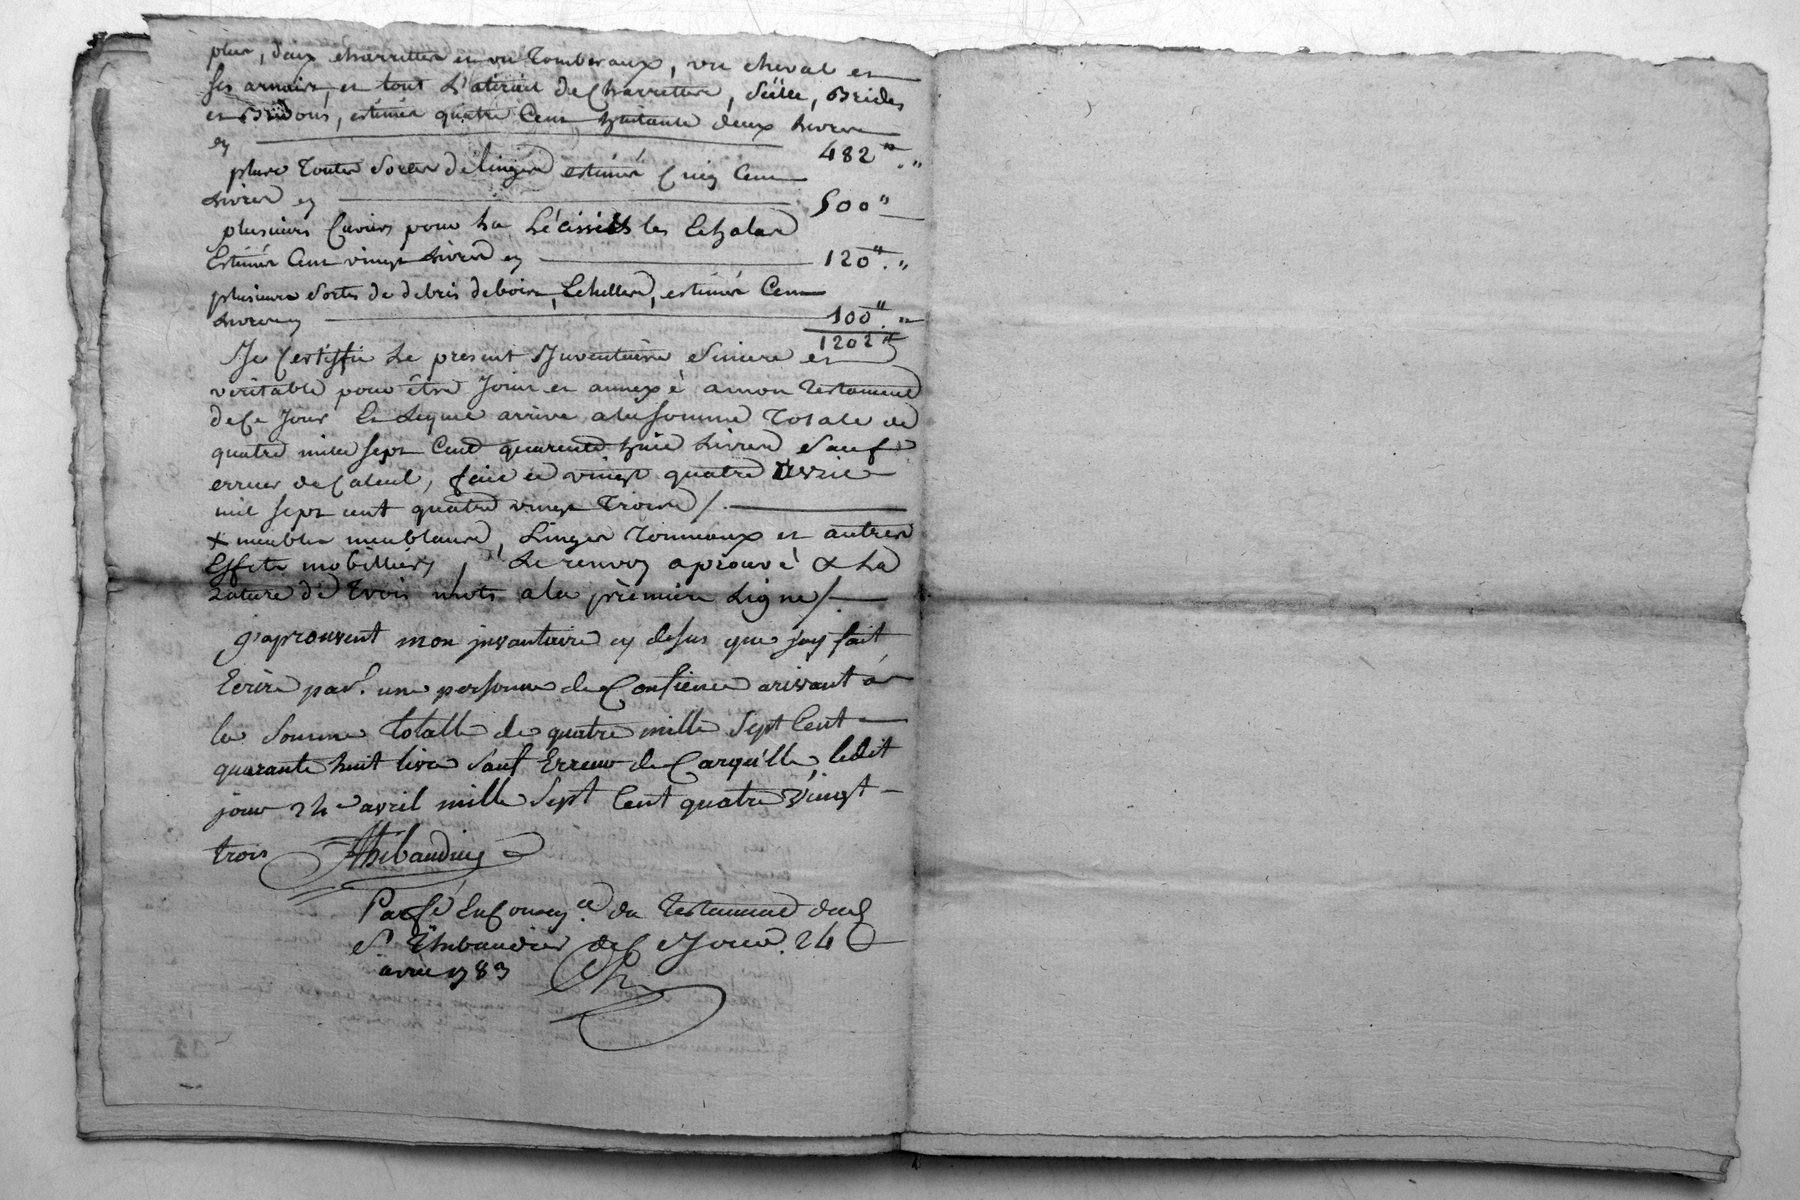 plus, deux charrettes et un Tomberaux, un cheval et
ses armois, et tout L'atirail de Charrettes, Seilles, Brides
et Bridons, estimés quatre Cent huitante deux Livres
ey 482 "
plus Toutes Sortes de linges estimé Cinq Cent
Livres ey 500 "
plusieurs Cuviers pour La Léssive les Echalas
Estimés Cent vingt Livres ey 120 "
plusieurs Sortes de debris de bois, Echelles, estimés Cent
Livres ey 100 "
1202
Je Certiffie Le present Inventaire Sincere et
veritable pour être Joint et annexé a mon Testament
de Ce Jour Et Lequel arrive a la Somme Totale de
quatre mille sept Cent quarente huit Livres Sauf
erreur de Calcul, fait ce vingt quatre avril
mil sept cent quatre vingt Trois /.
+ meubles meublants, Linges Tonneaux et autres
Effets mobilliers, Le renvoy aprouvé & La
Rature de trois mots a la prèmiere Ligne /.
j'aprouvent mon jnvantaire cy desus que j'ay fait
Ecrire par. une personne de Confience arivant à
la Somme totalle de quatre mille Sept Cent
quarante huit livre Sauf Erreur de Carquille, ledit
jour 24 avril mille Sept Cent quatre vingt
trois Thibaudier
du Testament dud
Sr Thibaudier de Ce Jour 24
avril 1783